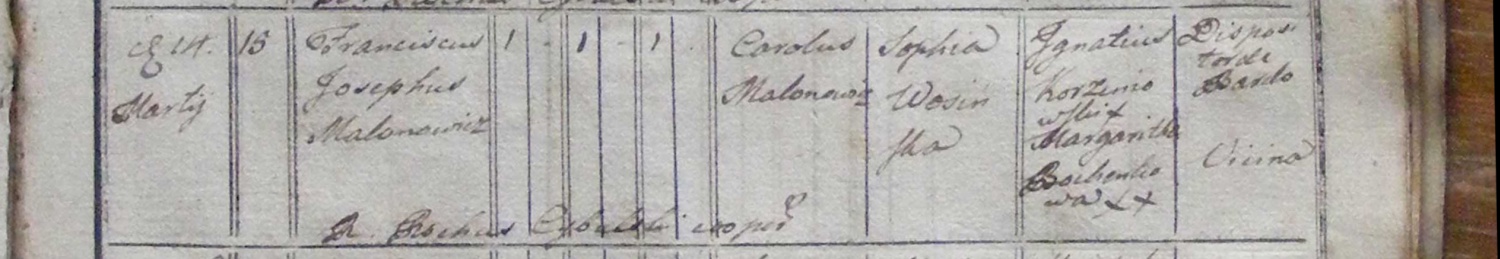 Et 14. Martij
15
Franciscus
Josephus
Malonowicz
1 - 1 - 1 .
Carolus
Malonowicz
Sophia
Wosin
ska
Ignatius
Korzenio
wski +
Margaritha
Bochenko
wa ++
Dispos
tor de
Bardo
Vicina
R. Rochus Cybulski cooper